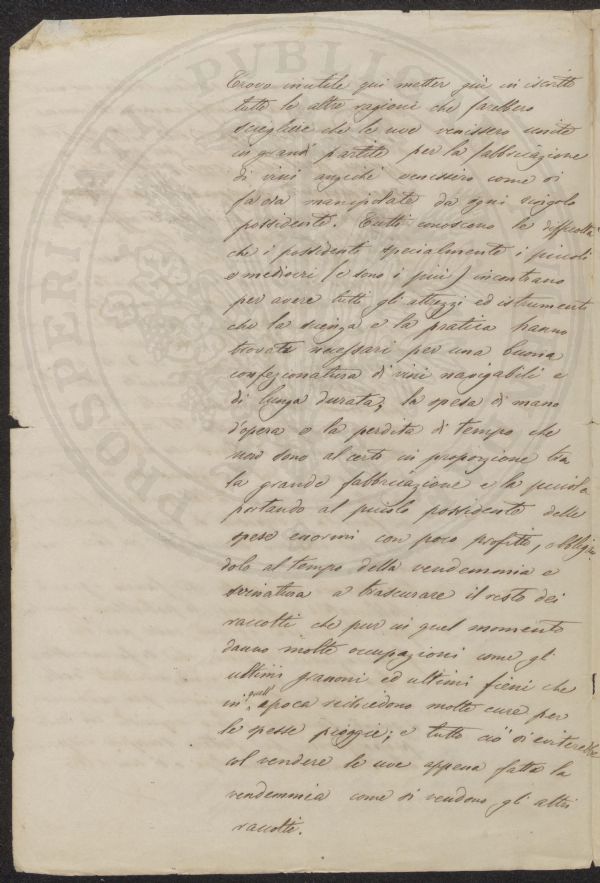 Trovo inutile qui metter giù in iscritto
tutte le altre ragioni che farebbero
sciegliere che le uve venissero unite
in grandi partite per la fabbricazione
di vini anziché venissero come si
fa ora manipolate da ogni singolo
possidente. Tutti conoscono le difficoltà
che i possidenti specialmente i piccoli
e mediocri (e sono i più) incontrano
per avere tutti gli attrezzi ed istrumenti
che la scienza e la pratica hanno
trovato necessari per una buona
confezionatura di vini navigabili e
di lunga durata, la spesa di mano
d'opera e la perdita di tempo che
non sono al certo in proporzione tra
la grande fabbricazione e la piccola
portando al piccolo possidente delle
spese enormi con poco profitto, obbligan
dolo al tempo della vendemmia e
svinatura a trascurare il resto dei
raccolti che pur in quel momento
danno molte occupazioni come gli
ultimi granoni ed ultimi fieni che
in quell' epoca richiedono molte cure per
le spesse pioggie; e tutto ciò si eviterebbe
col vendere le uve appena fatta la
vendemmia come si vendono gli altri
raccolti.
PROSPERITATI PVBLIC